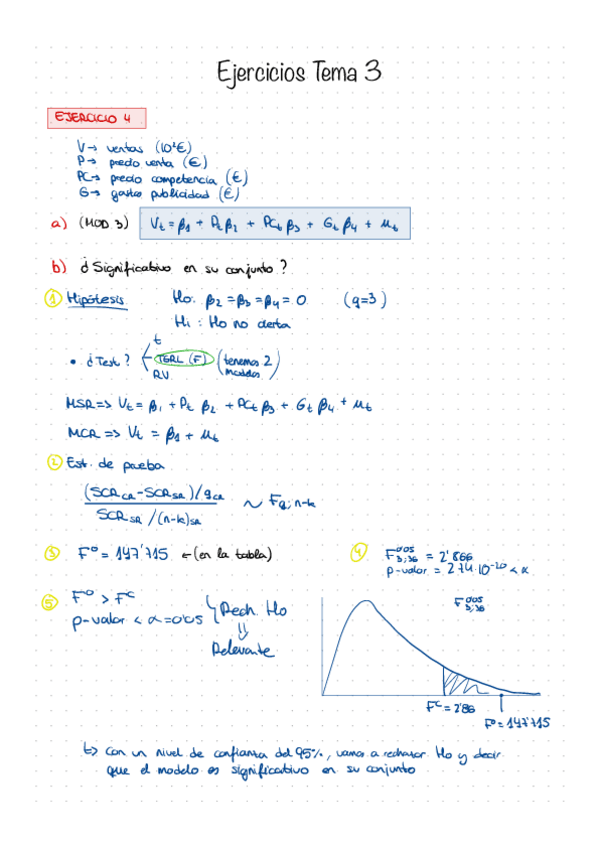 Ejercicios Tema 3
EJERCICIO 4
V → ventas (10³€)
P → precio venta (€)
PC → precio competencia (€)
G → gastos publicidad (€)
a) (MOD 3) Vt = β1 + Pt β2 + PCt β3 + Gt β4 + ut
b) ¿Significativo en su conjunto?
① Hipótesis Ho: β2 = β3 = β4 = 0 (q=3)
H1: Ho no cierta
t
• ¿Test? TGRL (F) (tenemos 2 modelos)
RV
MSR => Vt = β1 + Pt β2 + PCt β3 + Gt β4 + ut
MCR => Vt = β1 + ut
② Est. de prueba
(SCR CR - SCR SR)/q CR
SCR SR /(n-k) SR
~ Fq; n-k
③ F⁰ = 147'715 ← (en la tabla)
④ F 0'05 3;36 = 2'866
p-valor = 2'74·10⁻²⁰ < α
⑤ F⁰ > Fᶜ
p-valor < α = 0'05
Rech. Ho
⇓
Relevante
F 0'05 3;36
Fᶜ = 2'86
F⁰ = 147'715
↳ con un nivel de confianza del 95%, vamos a rechazar Ho y decir
que el modelo es significativo en su conjunto